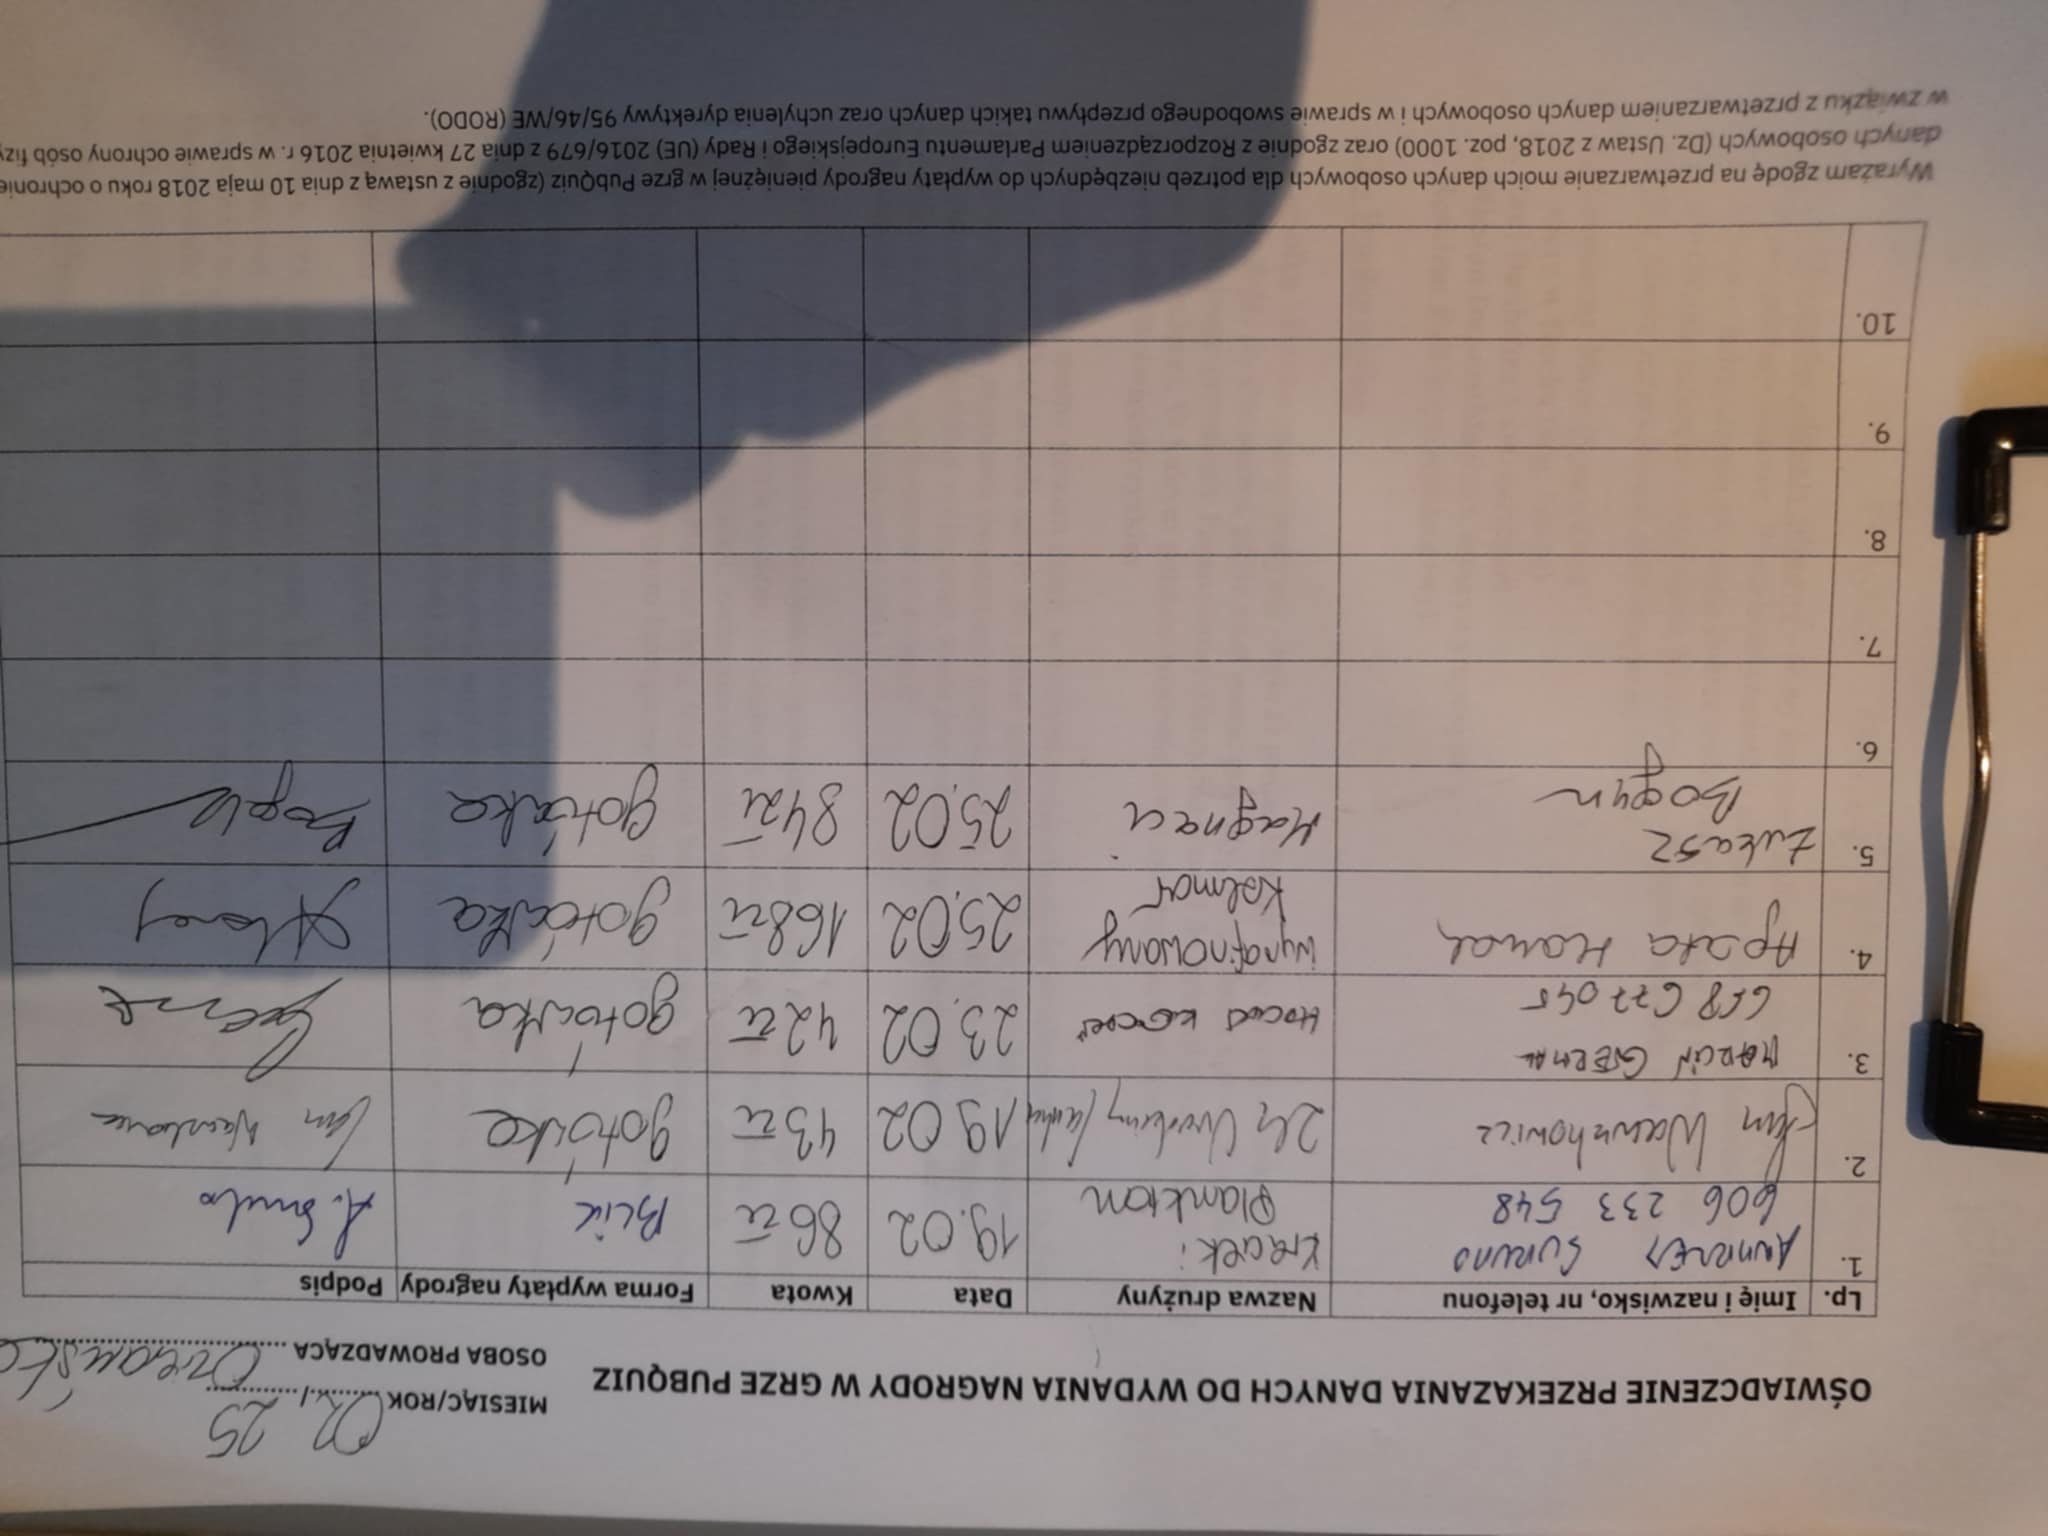 OŚWIADCZENIE PRZEKAZANIA DANYCH DO WYDANIA NAGRODY W GRZE PUBQUIZ
MIESIĄC/ROK 02 / 25
OSOBA PROWADZĄCA
Lp. Imię i nazwisko, nr telefonu Nazwa drużyny Data Kwota Forma wypłaty nagrody Podpis
1. 606 233 548 Plankton 19.02 86 zł BLIK
2. Jan 19.02 43 zł gotówka Jan
3. MARCIN GERMAN 23.02 42 zł gotówka
4. Agata wyrafinowany Kalmar 25.02 168 zł gotówka
5. Łukasz Bogun Magnaci 25.02 84 zł gotówka
6.
7.
8.
9.
10.
Wyrażam zgodę na przetwarzanie moich danych osobowych dla potrzeb niezbędnych do wypłaty nagrody pieniężnej w grze PubQuiz (zgodnie z ustawą z dnia 10 maja 2018 roku o ochronie
danych osobowych (Dz. Ustaw z 2018, poz. 1000) oraz zgodnie z Rozporządzeniem Parlamentu Europejskiego i Rady (UE) 2016/679 z dnia 27 kwietnia 2016 r. w sprawie ochrony osób fizy
w związku z przetwarzaniem danych osobowych i w sprawie swobodnego przepływu takich danych oraz uchylenia dyrektywy 95/46/WE (RODO).